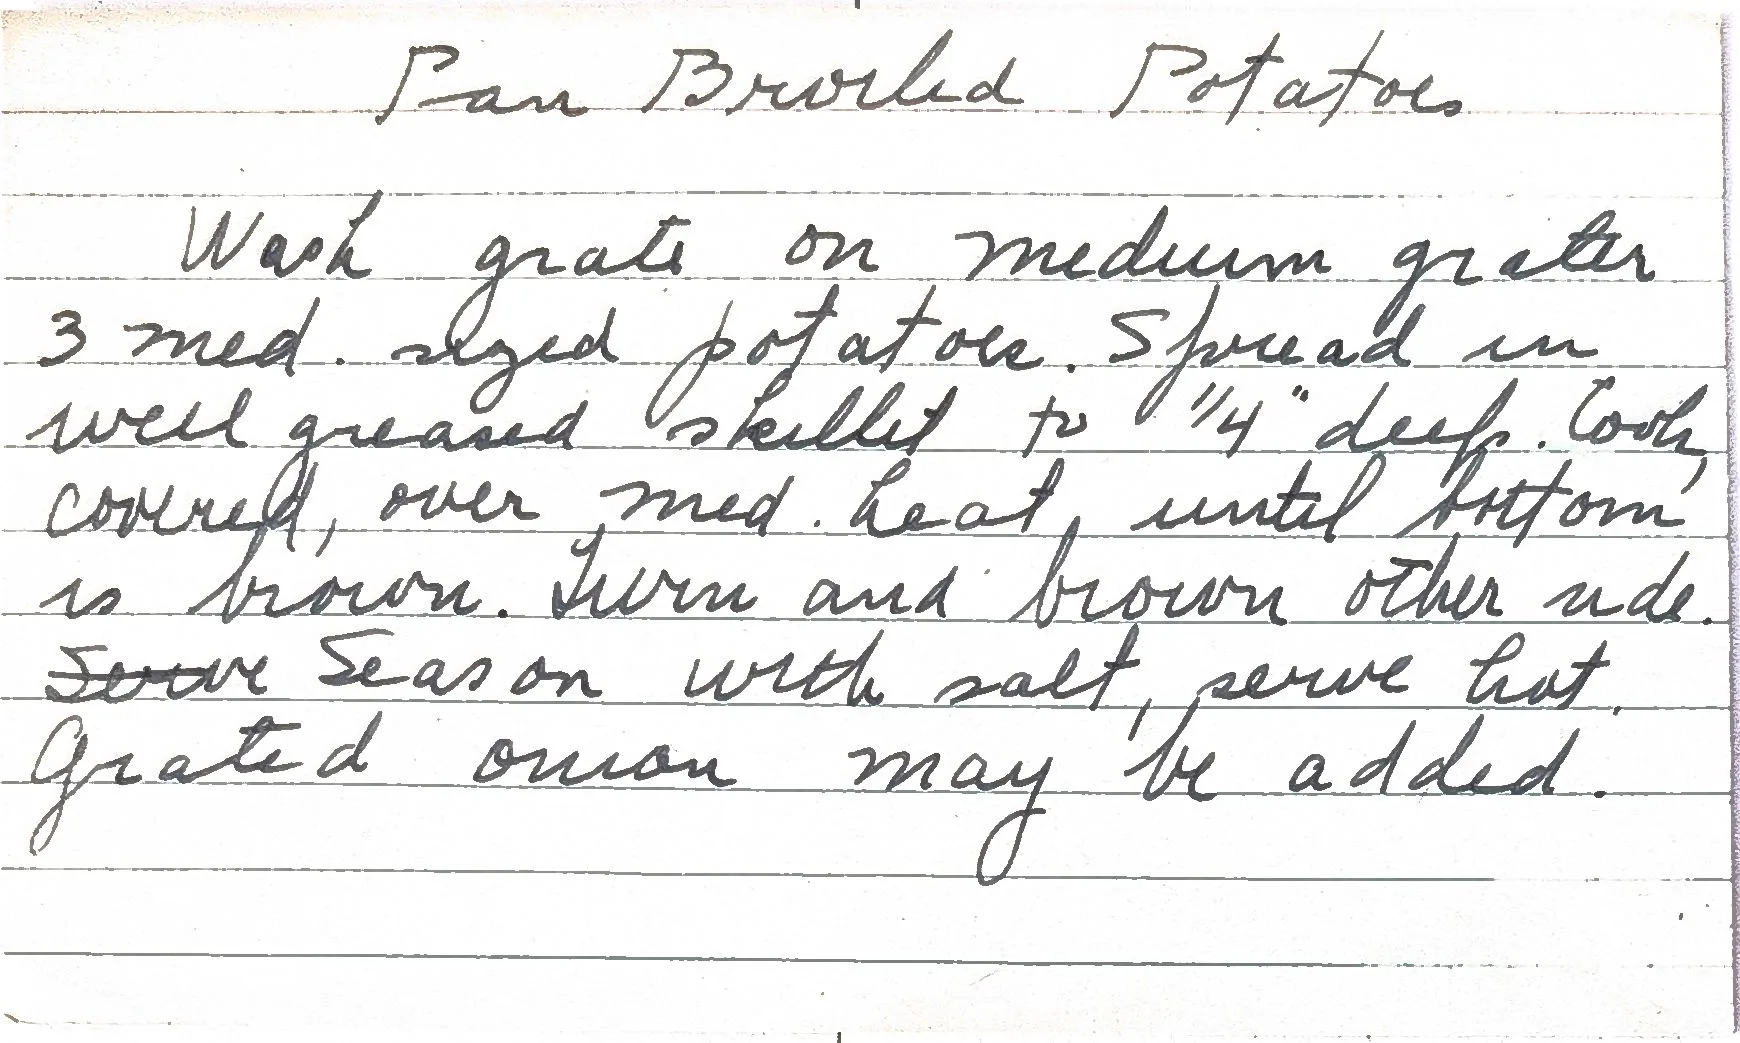 Pan Broiled Potatoes
Wash grate on medium grater
3 med. sized potatoes. Spread in
well greased skillet to 1/4" deep. Cook,
covered, over med. heat, until bottom
is brown. Turn and brown other side.
Serve Season with salt, serve hot.
Grated onion may be added.